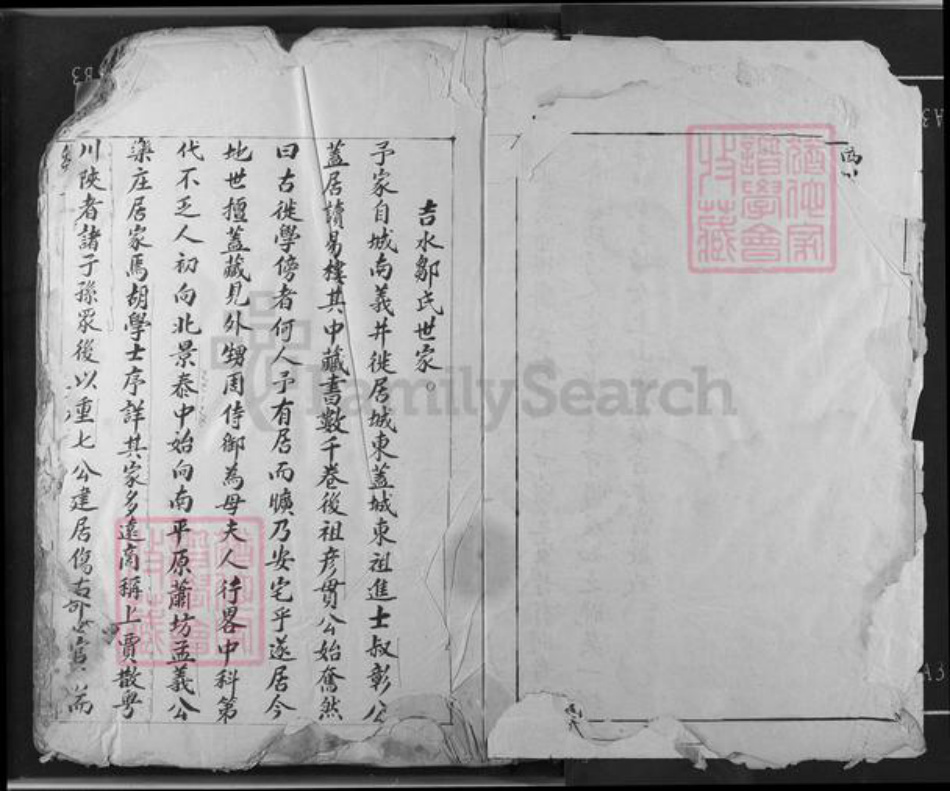 吉水鄒氏世家。
予家自城南義井徙居城東蓋城東祖進士叔彰公
蓋居讀易樓其中藏書數千卷後祖彥貫公始奮然
曰古徙學傍者何人予有居而曠乃安宅乎遂居今
地世擅蓋藏見外甥周侍御為母夫人行畧中科第
代不乏人初向北景泰中始向南平原蕭坊孟義公
樂庄居家焉胡學士序詳其家多遠商稱上賈散粤
川陝者諸子孫眾後以重七公建居傷古
FamilySearch